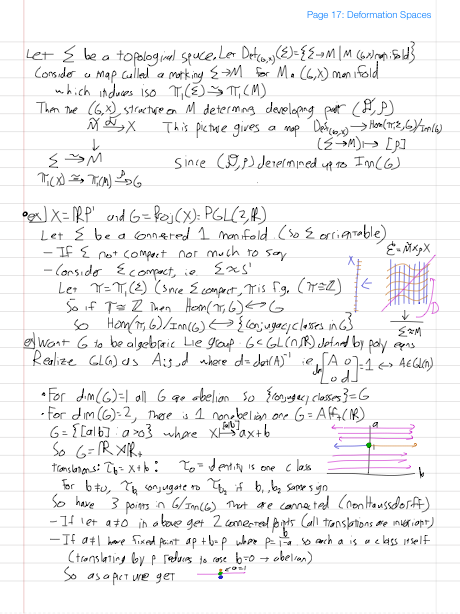 Page 17: Deformation Spaces
Let Σ be a topological space, Let Def_(G,X)(Σ) = {Σ→M | M (G,X) manifold}
Consider a map called a marking Σ→M for M a (G,X) manifold
which induces iso π₁(Σ) ⥲ π₁(M)
Then the (G,X) structure on M determines developing pair (D, ρ)
M̃ → X This picture gives a map Def_(G,X) → Hom(π₁Σ, G)/Inn(G)
↓ (Σ→M) ↦ [ρ]
Σ ⥲ M Since (D, ρ) determined up to Inn(G)
π₁(Σ) ⥲ π₁(M) →ρ G
ex) X = RP¹ and G = Proj(X) = PGL(2,R)
Let Σ be a connected 1 manifold (so Σ orrientable)
- If Σ not compact not much to say
- Consider Σ compact, i.e. Σ ≈ S¹
Let π = π₁(Σ) (since Σ compact, π is f.g. (π ≅ Z)
So if π ≅ Z then Hom(π, G) ↔ G
So Hom(π, G)/Inn(G) ↔ {conjugacy classes in G}
X
D
Σ ≈ M
ex) Want G to be algebraic Lie group. G < GL(n,R) defined by poly eqns
Realize GL(n) as A, d where d = det(A)⁻¹ i.e. det [A 0 0 d] = 1 ↔ A∈GL(n)
• For dim(G)=1 all G are abelian so {conjugacy classes} = G
• For dim(G)=2, there is 1 nonabelian one G = Aff₊(R)
G = {[a|b] : a>0} where x ↦ ax+b
So G = R ⋊ R₊
translations: τ_b = x+b : τ₀ = identity is one class
For b≠0, τ_b₁ conjugate to τ_b₂ if b₁, b₂ same sign
So have 3 points in G/Inn(G) that are connected (nonHaussdorff)
- If let a≠0 in above get 2 connected points (all translations are invariant)
- If a≠1 have fixed point ap+b=p where p = b/1-a so each a is a class itself
(translating by p reduces to case b=0 → abelian)
So as a picture get
a=1
a
1
b